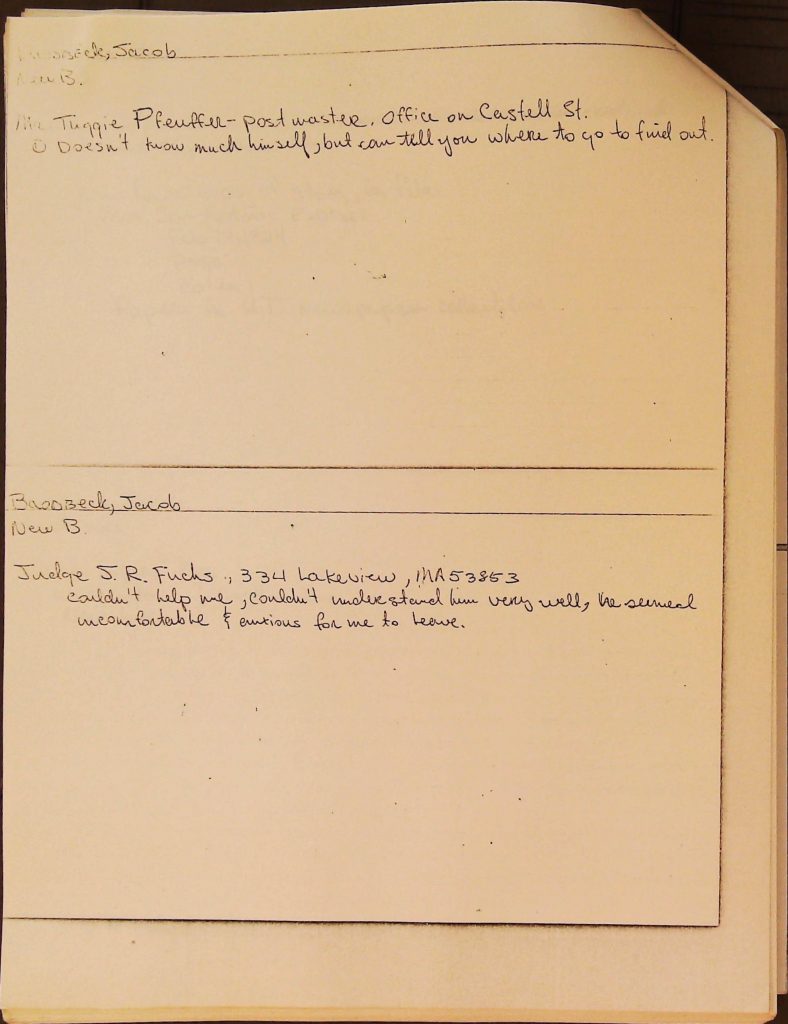 Brodbeck, Jacob
New B.
Mr. Tuggie Pfeuffer - postmaster. Office on Castell St.
Doesn't know much himself, but can tell you where to go to find out.
Brodbeck, Jacob
New B.
Judge J. R. Fuchs, 334 Lakeview, MA53853
couldn't help me, couldn't understand him very well, he seemed
uncomfortable & anxious for me to leave.